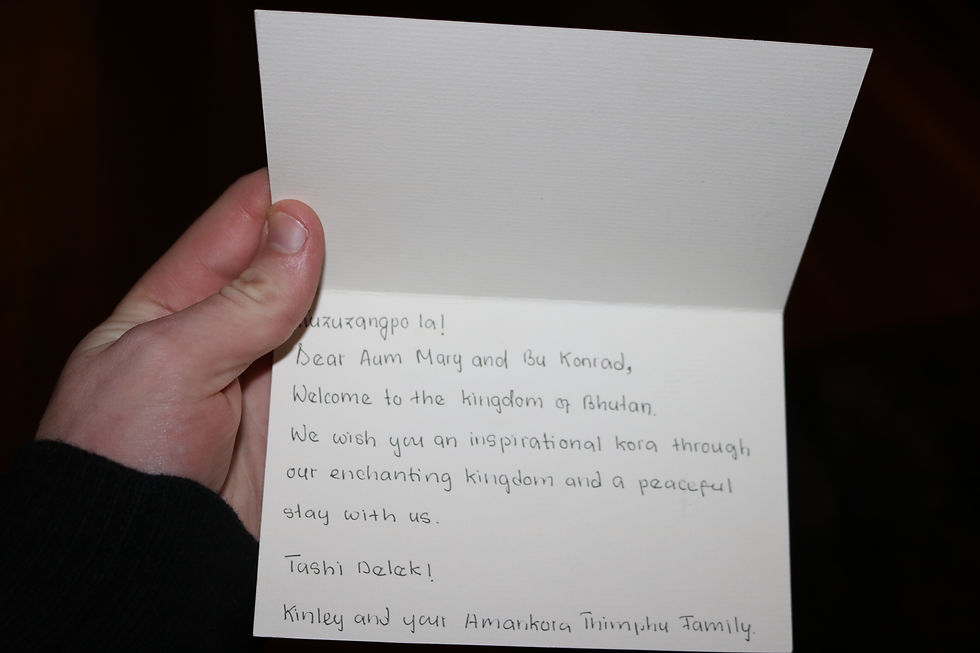 uzuzangpo la!
Dear Aum Mary and Bu Konrad,
Welcome to the kingdom of Bhutan.
We wish you an inspirational kora through
our enchanting kingdom and a peaceful
stay with us.
Tashi Delek!
Kinley and your Amankora Thimphu Family.